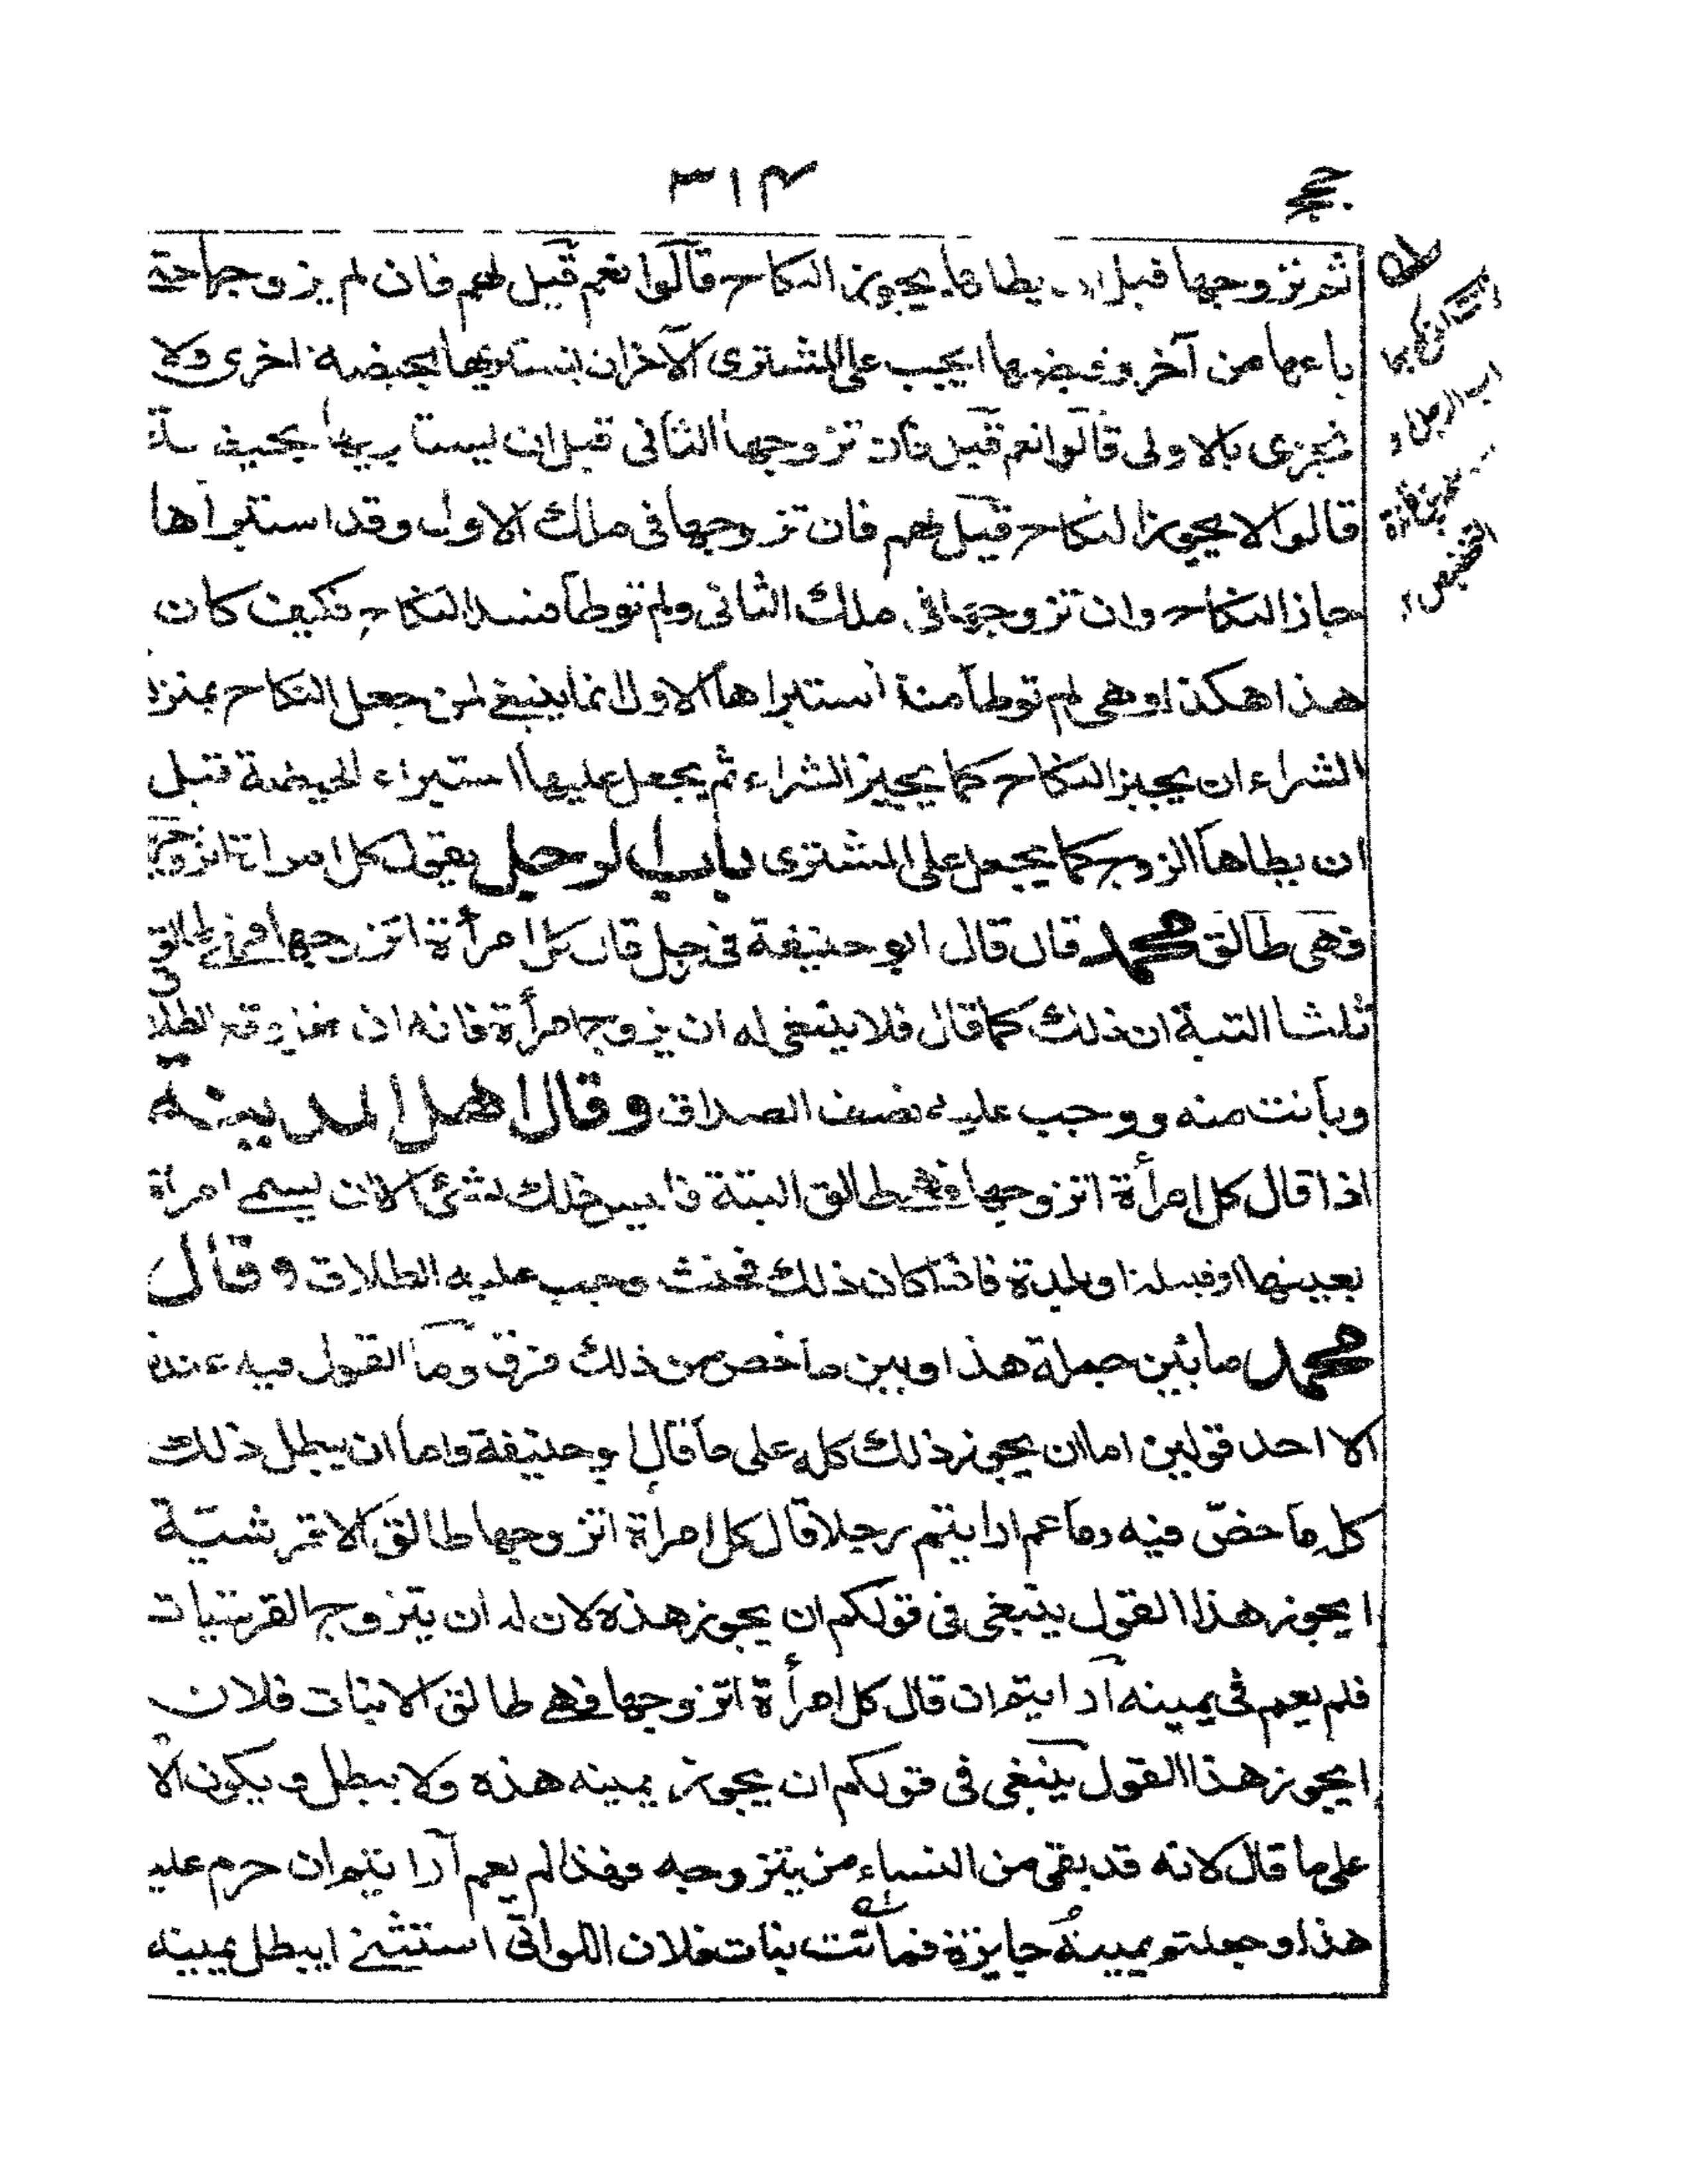 حجج
٣١٣
ثم تزوجها قبل ان يطاها يجوز النكاح قالوا نعم قيل لهم فان لم يزوجها حتى
باعها من آخر وقبضها ايجب على المشترى الآخر ان يستبريها بحيضة اخرى ولا
تجزى بالاولى قالوا نعم قيل فان تزوجها الثانى قبل ان يستبريها بحيضة
قالوا لا يجوز النكاح قيل لهم فان تزوجها فى ملك الاول وقد استبرأها
جاز النكاح وان تزوجها فى ملك الثانى ولم توطأ فسد النكاح فكيف كان
هذا هكذا وهى لم توطأ منذ استبراها الاول انما ينبغى لمن جعل النكاح بمنزلة
الشراء ان يجيز النكاح كما يجيز الشراء ثم يجعل عليها استبراء الحيضة قبل
ان يطاها الزوج كما يجعل على المشترى باب الرجل يقول كل امراة اتزوجها
فهى طالق محمد قال قال ابو حنيفة فى رجل قال كل امرأة اتزوجها فهى طالق
ثلثا البتة ان ذلك كما قال فلا ينبغى له ان يزوج امرأة فانه ان وقع الطلا
وبانت منه ووجب عليه نصف الصداق وقال اهل المدينة
اذا قال كل امرأة اتزوجها فهى طالق البتة فليس ذلك بشئ الا ان يسمى امراة
بعينها او قبيلة واحدة فاذا كان ذلك فحنث وجب عليه الطلاق وقال
محمد ما بين جملة هذا وبين ما خص من ذلك فرق وما القول فيه عندنا
الا احد قولين اما ان يجوز ذلك كله على ما قال ابو حنيفة واما ان يبطل ذلك
كل ما خصّ فيه وما عم ارايتم رجلا قال كل امراة اتزوجها طالق الا قرشيّة
ايجوز هذا القول ينبغى فى قولكم ان يجوز هذه لان له ان يتزوج القرشيات
فلم يعم فى يمينه آرايتم ان قال كل امرأة اتزوجها فهى طالق الا بنات فلان
ايجوز هذا القول ينبغى فى قولكم ان يجوز يمينه هذه ولا يبطل ويكون الا
على ما قال لانه قد بقى من النساء من يتزوجه فهذا لم يعم آرايتم ان حرم عليه
هذا وجعلتم يمينه جايزة فماتت بنات فلان اللواتى استثنى ايبطل يمينه